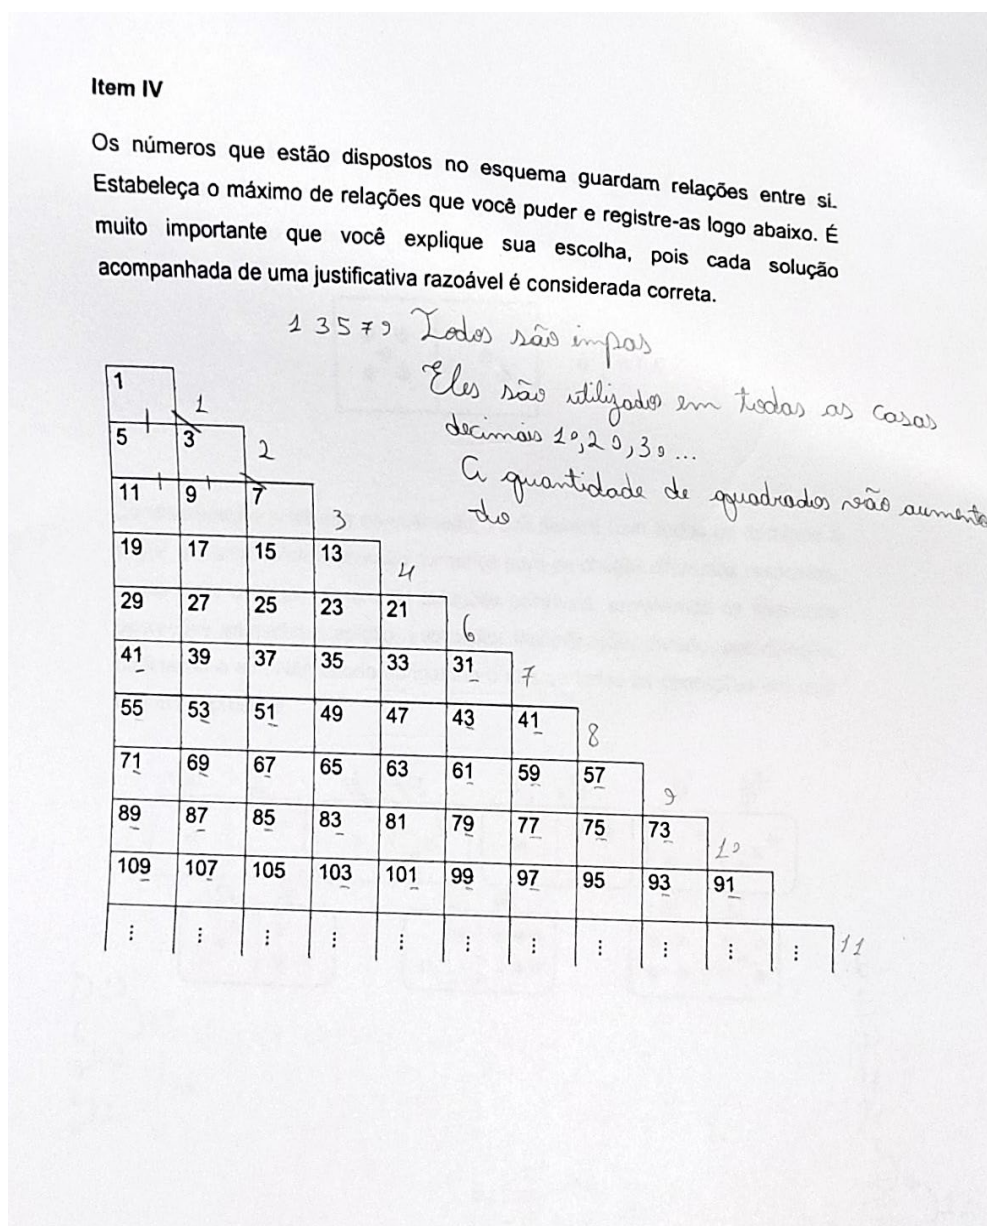 Item IV
Os números que estão dispostos no esquema guardam relações entre si.
Estabeleça o máximo de relações que você puder e registre-as logo abaixo. É
muito importante que você explique sua escolha, pois cada solução
acompanhada de uma justificativa razoável é considerada correta.
1 3 5 7 9 Todos são impas
Eles são utilizados em todas as casas
decimais 10, 20, 30 ...
A quantidade de quadrados vão aumenta
do
1
1
5 3
2
11 9 7
3
19 17 15 13
4
29 27 25 23 21
6
41 39 37 35 33 31
7
55 53 51 49 47 43 41
8
71 69 67 65 63 61 59 57
9
89 87 85 83 81 79 77 75 73
10
109 107 105 103 101 99 97 95 93 91
⋮ ⋮ ⋮ ⋮ ⋮ ⋮ ⋮ ⋮ ⋮ ⋮ ⋮ 11